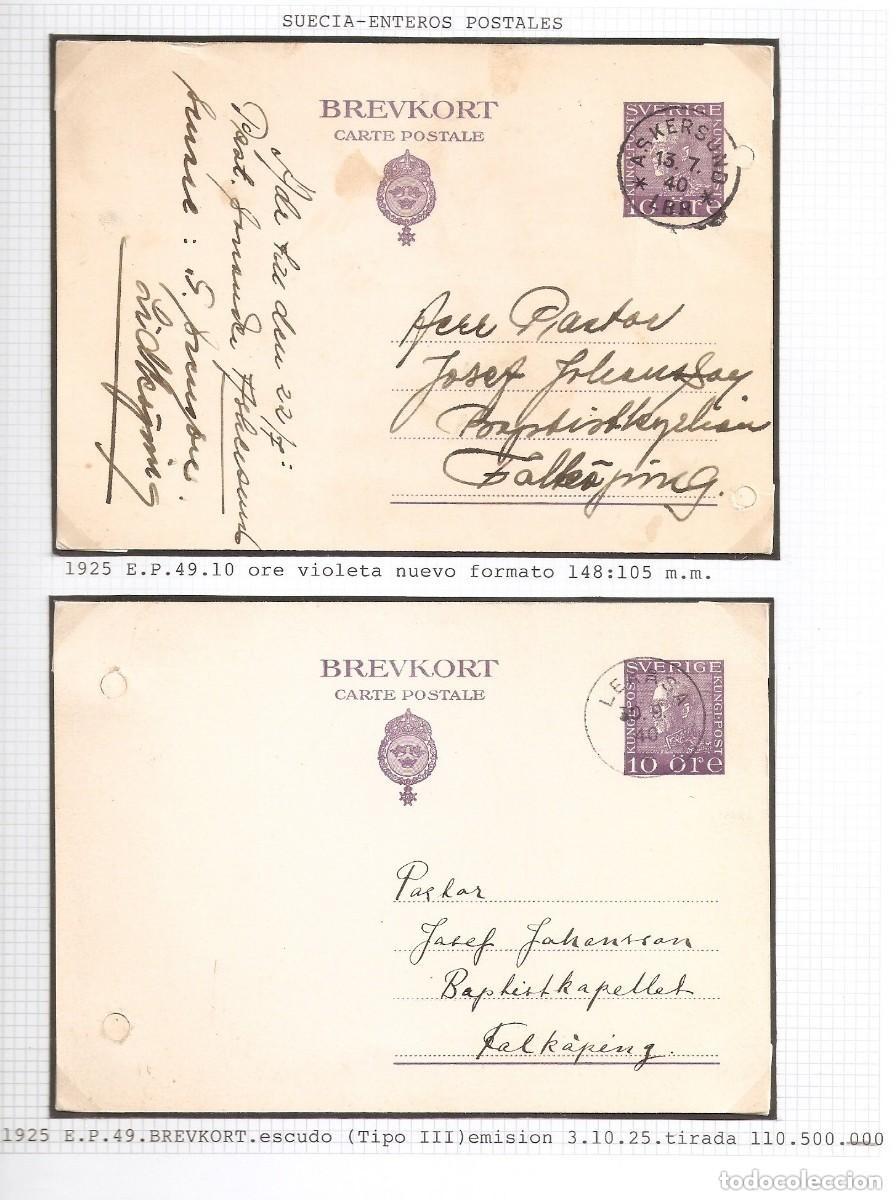 SUECIA-ENTEROS POSTALES
BREVKORT
CARTE POSTALE
SVERIGE
10 ÖRE
ASKERSUND
13. 7.
40
Adr till den 22/7:
Past.
Askersund
Lidköping
Herr Pastor
Josef Johansson
Baptistkyrkan
Falköping.
1925 E.P.49.10 ore violeta nuevo formato 148:105 m.m.
BREVKORT
CARTE POSTALE
SVERIGE
KUNGL·POST
KUNGL·POST
10 ÖRE
30.9.
40
Pastor
Josef Johansson
Baptistkapellet
Falköping.
1925 E.P.49.BREVKORT.escudo (Tipo III)emision 3.10.25.tirada 110.500.000
todocoleccion